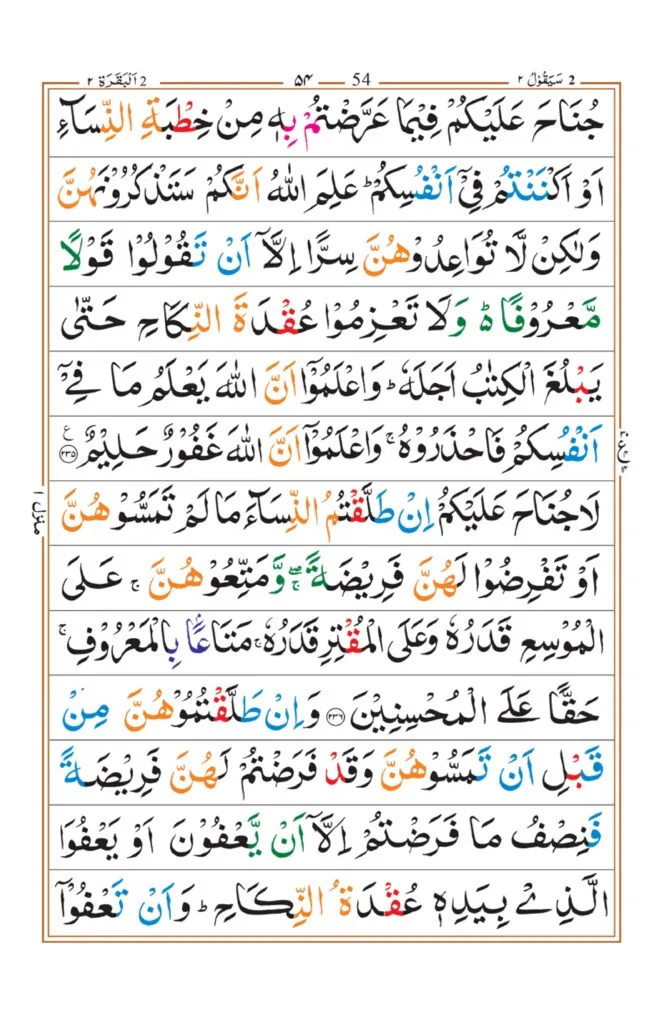 2 سَيَقُوْلُ ٢ 54 ۵۴ 2 اَلْبَقَرَة ٢
جُنَاحَ عَلَيْكُمْ فِيْمَا عَرَّضْتُمْ بِهٖ مِنْ خِطْبَةِ النِّسَآءِ
اَوْ اَكْنَنْتُمْ فِيْۤ اَنْفُسِكُمْ ؕ عَلِمَ اللّٰهُ اَنَّكُمْ سَتَذْكُرُوْنَهُنَّ
وَلٰكِنْ لَّا تُوَاعِدُوْهُنَّ سِرًّا اِلَّاۤ اَنْ تَقُوْلُوْا قَوْلًا
مَّعْرُوْفًا ؕ۬ وَلَا تَعْزِمُوْا عُقْدَةَ النِّكَاحِ حَتّٰى
يَبْلُغَ الْكِتٰبُ اَجَلَهٗ ؕ وَاعْلَمُوْۤا اَنَّ اللّٰهَ يَعْلَمُ مَا فِيْۤ
اَنْفُسِكُمْ فَاحْذَرُوْهُ ۚ وَاعْلَمُوْۤا اَنَّ اللّٰهَ غَفُوْرٌ حَلِيْمٌ ﴿۲۳۵﴾ ع
لَا جُنَاحَ عَلَيْكُمْ اِنْ طَلَّقْتُمُ النِّسَآءَ مَا لَمْ تَمَسُّوْهُنَّ
اَوْ تَفْرِضُوْا لَهُنَّ فَرِيْضَةً ۖۚ وَّمَتِّعُوْهُنَّ ۚ عَلَى
الْمُوْسِعِ قَدَرُهٗ وَعَلَى الْمُقْتِرِ قَدَرُهٗ ۚ مَتَاعًۢا بِالْمَعْرُوْفِ ۚ
حَقًّا عَلَى الْمُحْسِنِيْنَ ﴿۲۳۶﴾ وَاِنْ طَلَّقْتُمُوْهُنَّ مِنْ
قَبْلِ اَنْ تَمَسُّوْهُنَّ وَقَدْ فَرَضْتُمْ لَهُنَّ فَرِيْضَةً
فَنِصْفُ مَا فَرَضْتُمْ اِلَّاۤ اَنْ يَّعْفُوْنَ اَوْ يَعْفُوَا
الَّذِيْ بِيَدِهٖ عُقْدَةُ النِّكَاحِ ؕ وَاَنْ تَعْفُوْۤا
منزل ١